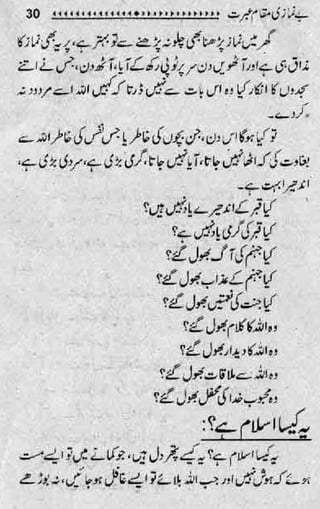 بے نمازی مقام عبرت 30
گھر میں نماز پڑھنا بھی چلو نہ پڑھنے سے تو بہتر ہے، پر یہ بھی نماز کا
مذاق ہی ہے اور آٹھویں دن سر پر ٹوپی رکھ کے آیا، آٹھ دن، جس نے اتنے
سجدوں کا انکار کیا وہ اس بات سے نہیں ڈرتا کہ کہیں اللہ اسے مردود نہ
کر دے۔
تو کیا ہوگا اس دن، جن بچوں کی خاطر یا جس نفس کی خاطر اللہ سے
بغاوت کی کہ اٹھا نہیں جاتا، آیا نہیں جاتا، گرمی بڑی ہے، سردی بڑی ہے،
اندھیرا بہت ہے۔
کیا قبر کے اندھیرے یاد نہیں ہیں؟
کیا قبر کی گرمی یاد نہیں ہے؟
کیا جہنم کی آگ بھول گئے؟
کیا جہنم کے عذاب بھول گئے؟
کیا جنت کی نعمتیں بھول گئے؟
وہ اللہ کا کلام بھول گئے؟
وہ اللہ کا دیدار بھول گئے؟
وہ اللہ سے ملاقات بھول گئے؟
وہ محبوب خدا کی محفل بھول گئے؟
یہ کیسا اسلام ہے؟:
یہ کیسا اسلام ہے؟ یہ کیسے پتھر دل ہیں، جو کمانے میں تو ایسے مست
ہوئے کہ ہوش نہیں اور جب اللہ بلائے تو ایسے غافل ہو جائیں، نہ بوڑھے